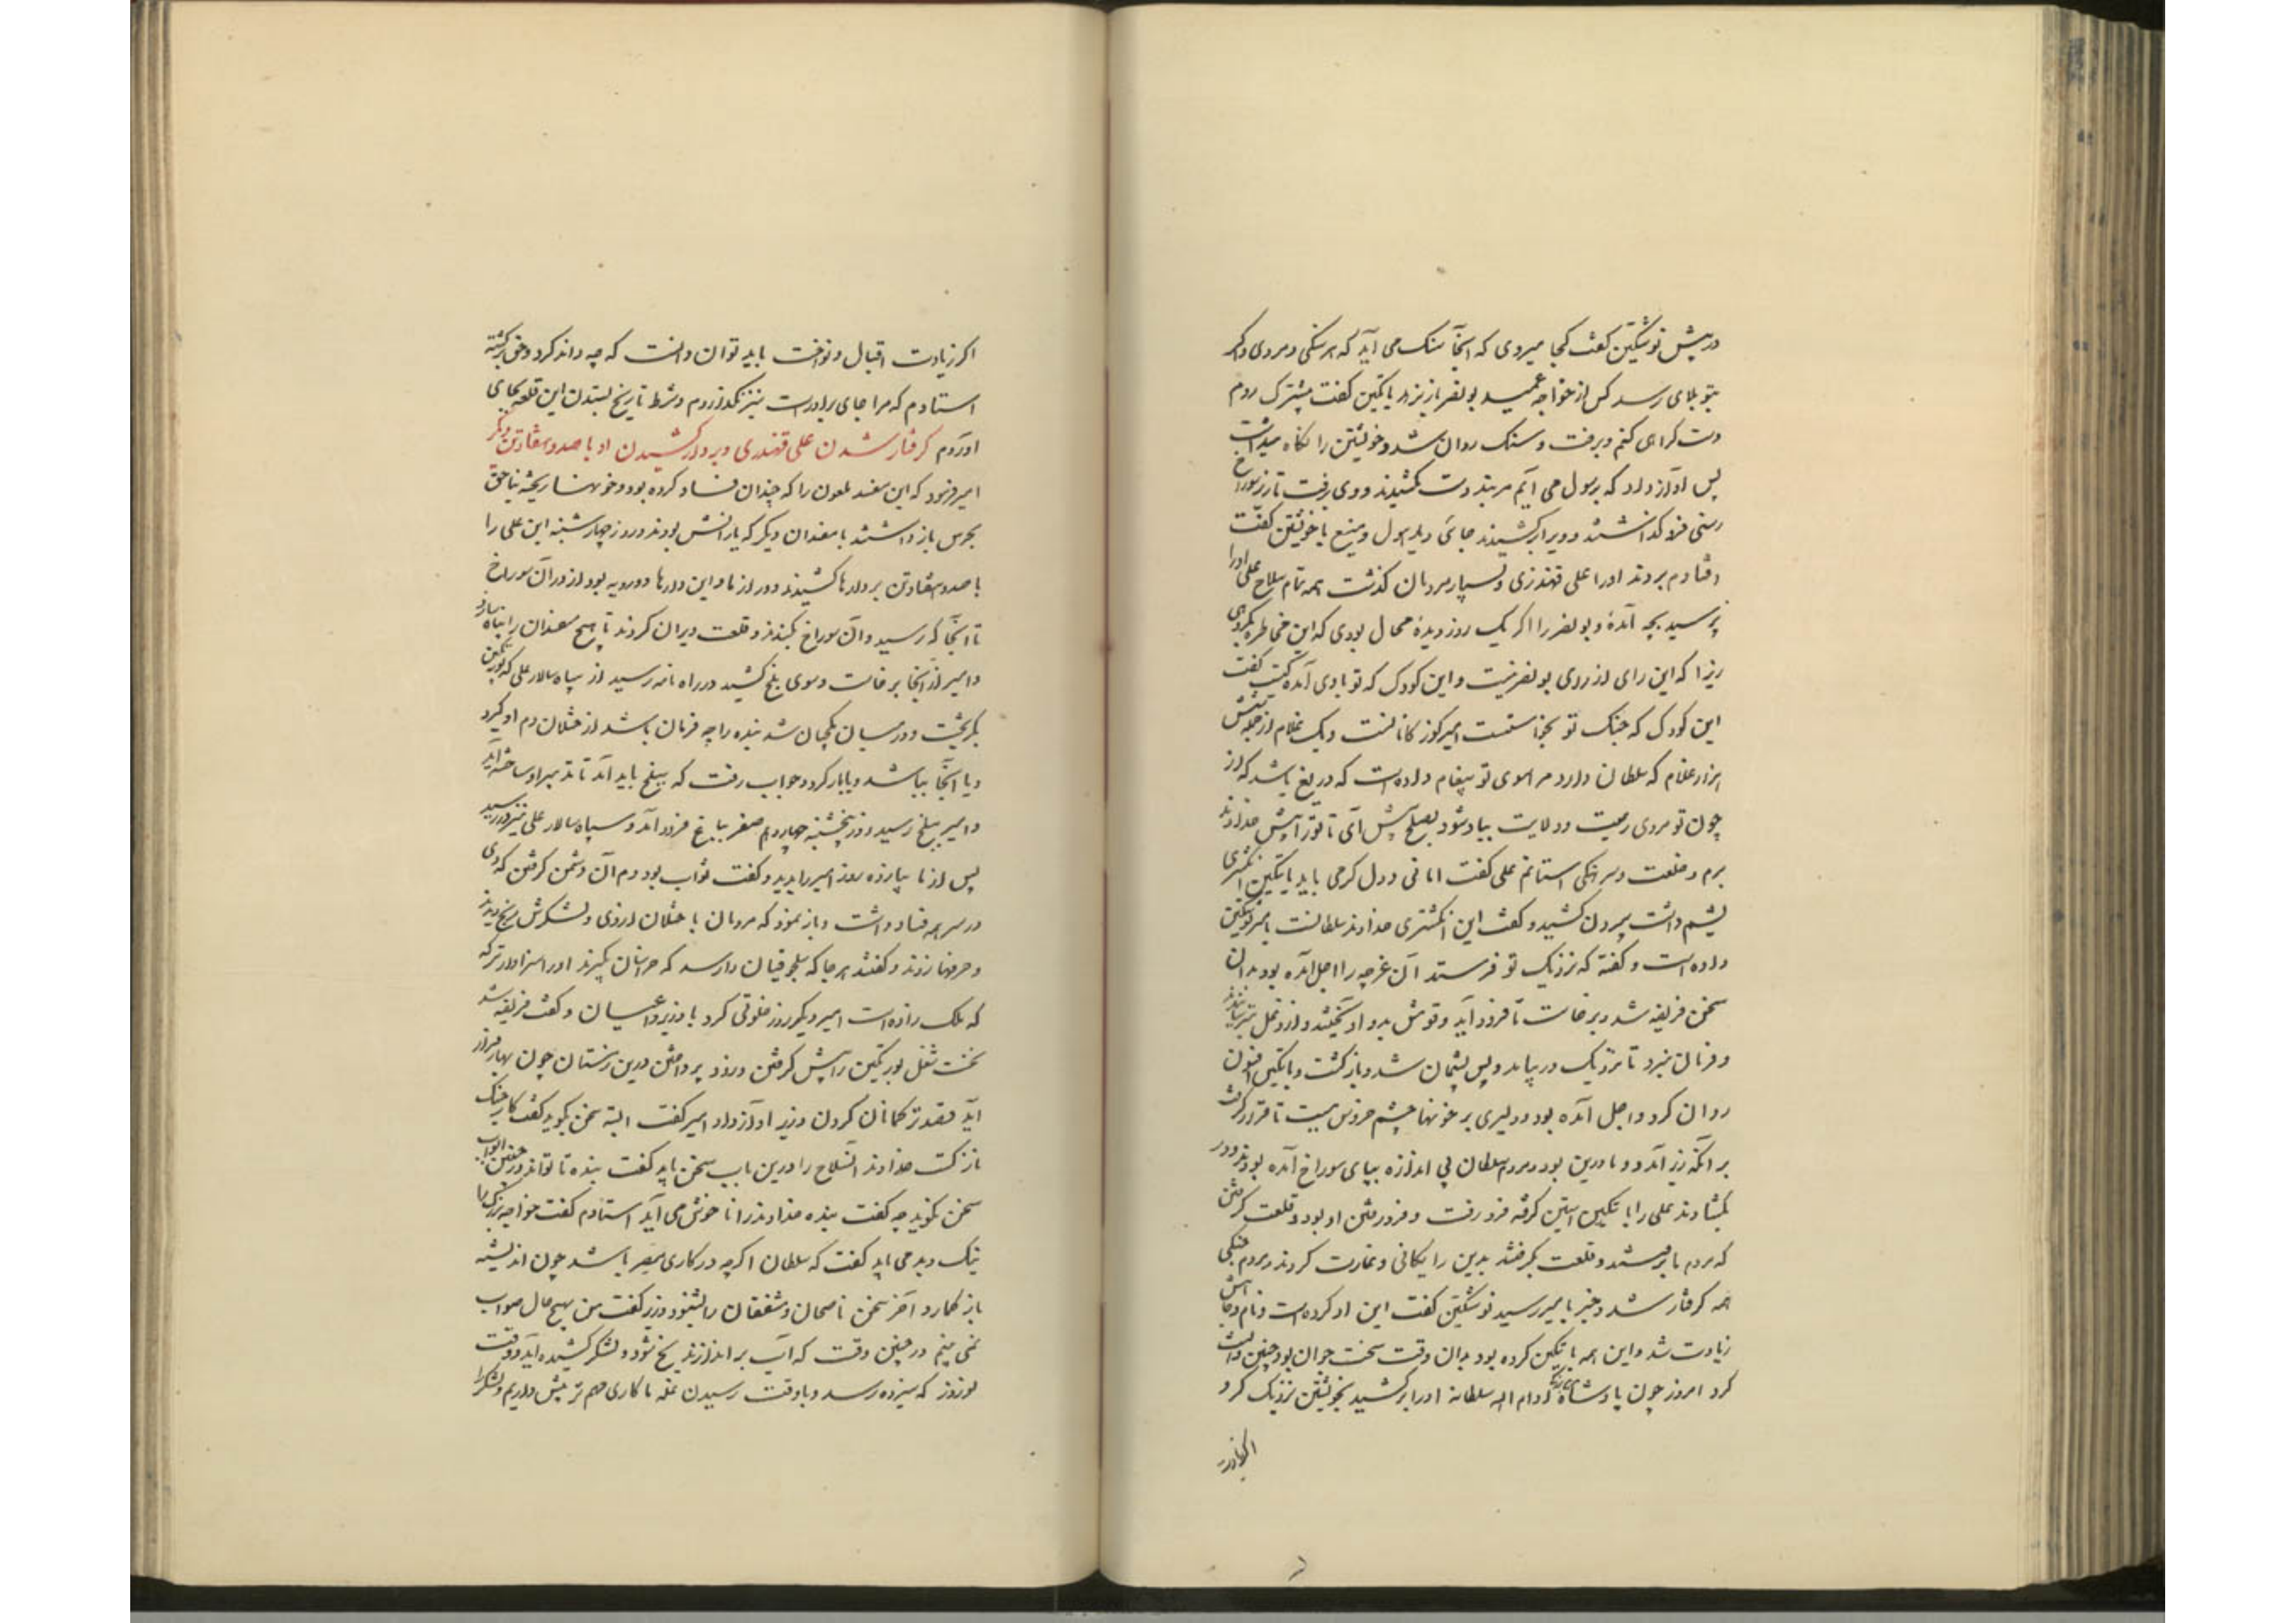 در پیش نوشتگین گفت کجا میروی که اینجا سنک می آید که هر سنکی و مردی واکر
بتو بلای رسد کس از خواجه عمید بونصر باز نزهد بایتکین گفت پیشترک روم
دست کرای کنم و برفت و سنک روان شد و خویشتن را نکاه میداشت
پس آواز داد که برسول می آیم مزنید دست بکشیدند و وی برفت تا زیر سوراخ
رسنی فرو کذاشتند و ویرا برکشیدند جائی دید هول و منیع با خویشتن گفت
افتادم بردند او را علی قهندزی و بسیار مردمان کذشت همه تمام سلاح علی اورا
پرسید بچه آمدهٔ و بونصر را اکر یک روز دیدهٔ محال بودی که این مخاطره بکردی
زیرا که این رای از روی بونصر نیست و این کودک که تو با وی آمده کیست گفت
این کودک که جنک تو بخواستست امیر کوز کانانست و یک غلام از جمله شش
هزار غلام که سلطان دارد مرا سوی تو پیغام داده است که دریغ باشد که از
چون تو مردی رعیت و ولایت بباد شود بصلح پیش آی تا ترا پیش خداوند
برم و خلعت و سرهنکی استانم علی گفت امانی و دل کرمی باید بایتکین انکشتری
یشم داشت بیرون کشید و گفت این انکشتری خداوند سلطانست بامیر نوشتکین
داده است و گفته که نزدیک تو فرستد آن غرچه را اجل آمده بود بدان
سخن فریفته شد و برخاست تا فرود آید و قومش بدو آویختند و از دغل بترسانیدند
و فرمان نبرد تا نزدیک در بیامد و پس پشیمان شد و بازکشت و بایتکین افسون
روان کرد و اجل آمده بود و دلیری بر خونها چشم خردش ببست تا قرار گرفت
بر آنکه زیر آید و تا درین بود و مردم سلطان بی اندازه بپای سوراخ آمده بودند و در
بکشادند علی را بایتکین آستین کرفته فرو رفت و فرو رفتن او بود و قلعت کرفتن
که مردم ما بر رفتند و قلعت بکرفتند بدین رایکانی و غارت کردند و مردم جنکی
همه کرفتار شد و خبر بامیر رسید نوشتکین گفت این او کرده است و نام و جاهش
زیادت شد و این همه بایتکین کرده بود بدان وقت سخت جوان بود چنین دانست
کرد امروز چون پادشاه بزرک ادام الله سلطانه او را برکشید بخویشتن نزدیک کرد
اکر زیادت
اکر زیادت اقبال و نواخت باید توان دانست که چه داند کرد و حق برکشته
استادم که مرا جای برادرست نیز نکذاردم و شرط تاریخ بستدن این قلعه بجای
آوردم کرفتار شدن علی قهندزی و بردار کشیدن او با صد و هفتاد تن دیکر
امیر فرمود که این مفسد ملعون را که چندان فساد کرده بود و خونها ریخته بناحق
بحرس بازداشتند با مفسدان دیکر که یارانش بودند و روز چهارشنبه این علی را
با صد و هفتاد تن بر دارها کشیدند دور از ما و این دارها دو رویه بود از در آن سوراخ
تا آنجا که رسید و آن سوراخ بکندند و قلعت ویران کردند تا هیچ مفسدان را پناه نباشد
و امیر از آنجا برخاست و سوی بلخ کشید در راه نامه رسید از سپاه سالار علی که بورتکین
بکریخت و در میان کمیجیان شد بنده را چه فرمان باشد از ختلان دم او کیرد
و یا آنجا بباشد و یا باز کردد جواب رفت که ببلخ باید آمد تا تدبیر او ساخته آید
و امیر ببلخ رسید روز پنجشنبه چهاردهم صفر بباغ فرود آمد و سپاه سالار علی نیز در رسید
پس از ما بپانزده روز امیر را بدید و گفت ثواب بود دم آن دشمن کرفتن که وی
در سر همه فساد داشت و باز نمود که مردمان با ختلان از وی و لشکرش رنج دیدند
و حرفها زدند و گفتند هر جا که سلجوقیان را رسد که خراسان بکیرند او را سزاوارتر که
که ملک زاده است امیر دیکر روز خلوتی کرد با وزیر و اعیان و گفت فریضه شد
نخست شغل بورتکین را پیش کرفتن و زود پرداختن درین زمستان چون بهار فراز
آید قصد ترکمانان کردن وزیر آواز داد امیر گفت البته سخن بکوید گفت کار جنک
نازکست خداوندان سلاح را درین باب سخن باید گفت بنده تا تواند در چنین ابواب
سخن نکوید چه گفت بنده خداوند را ناخوش می آید استادم گفت خواجه بزرک را
نیک و بد می باید گفت که سلطان اکرچه در کاری مصر باشد چون اندیشه
باز کمارد آخر سخن ناصحان و مشفقان را بشنود وزیر گفت من بهیچ حال صواب
نمی بینم در چنین وقت که آب بر اندازند یخ شود و لشکر کشیده آید دو وقت
نوروز که سبزه رسد و یا وقت رسیدن غله ما کاری مهم تر پیش داریم و لشکر را